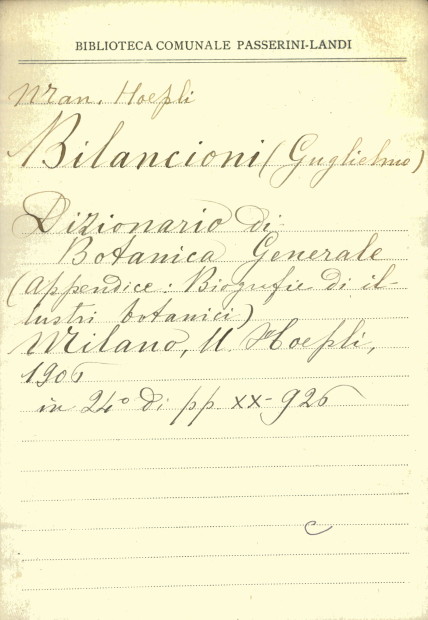 BIBLIOTECA COMUNALE PASSERINI-LANDI
Man. Hoepli
Bilancioni (Guglielmo)
Dizionario di
Botanica Generale
(Appendice: Biografie di il-
lustri botanici)
Milano, U. Hoepli,
1906
in 24° di pp XX-926
C